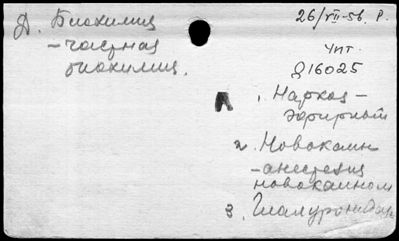 Д. Биохимия
– частная
биохимия.
26/VII-56. Р.
Чит.
Д16025
1. Наркоз –
эфирный
2. Новокаин
– анестезия
новокаином
3. Гиалуронидаз